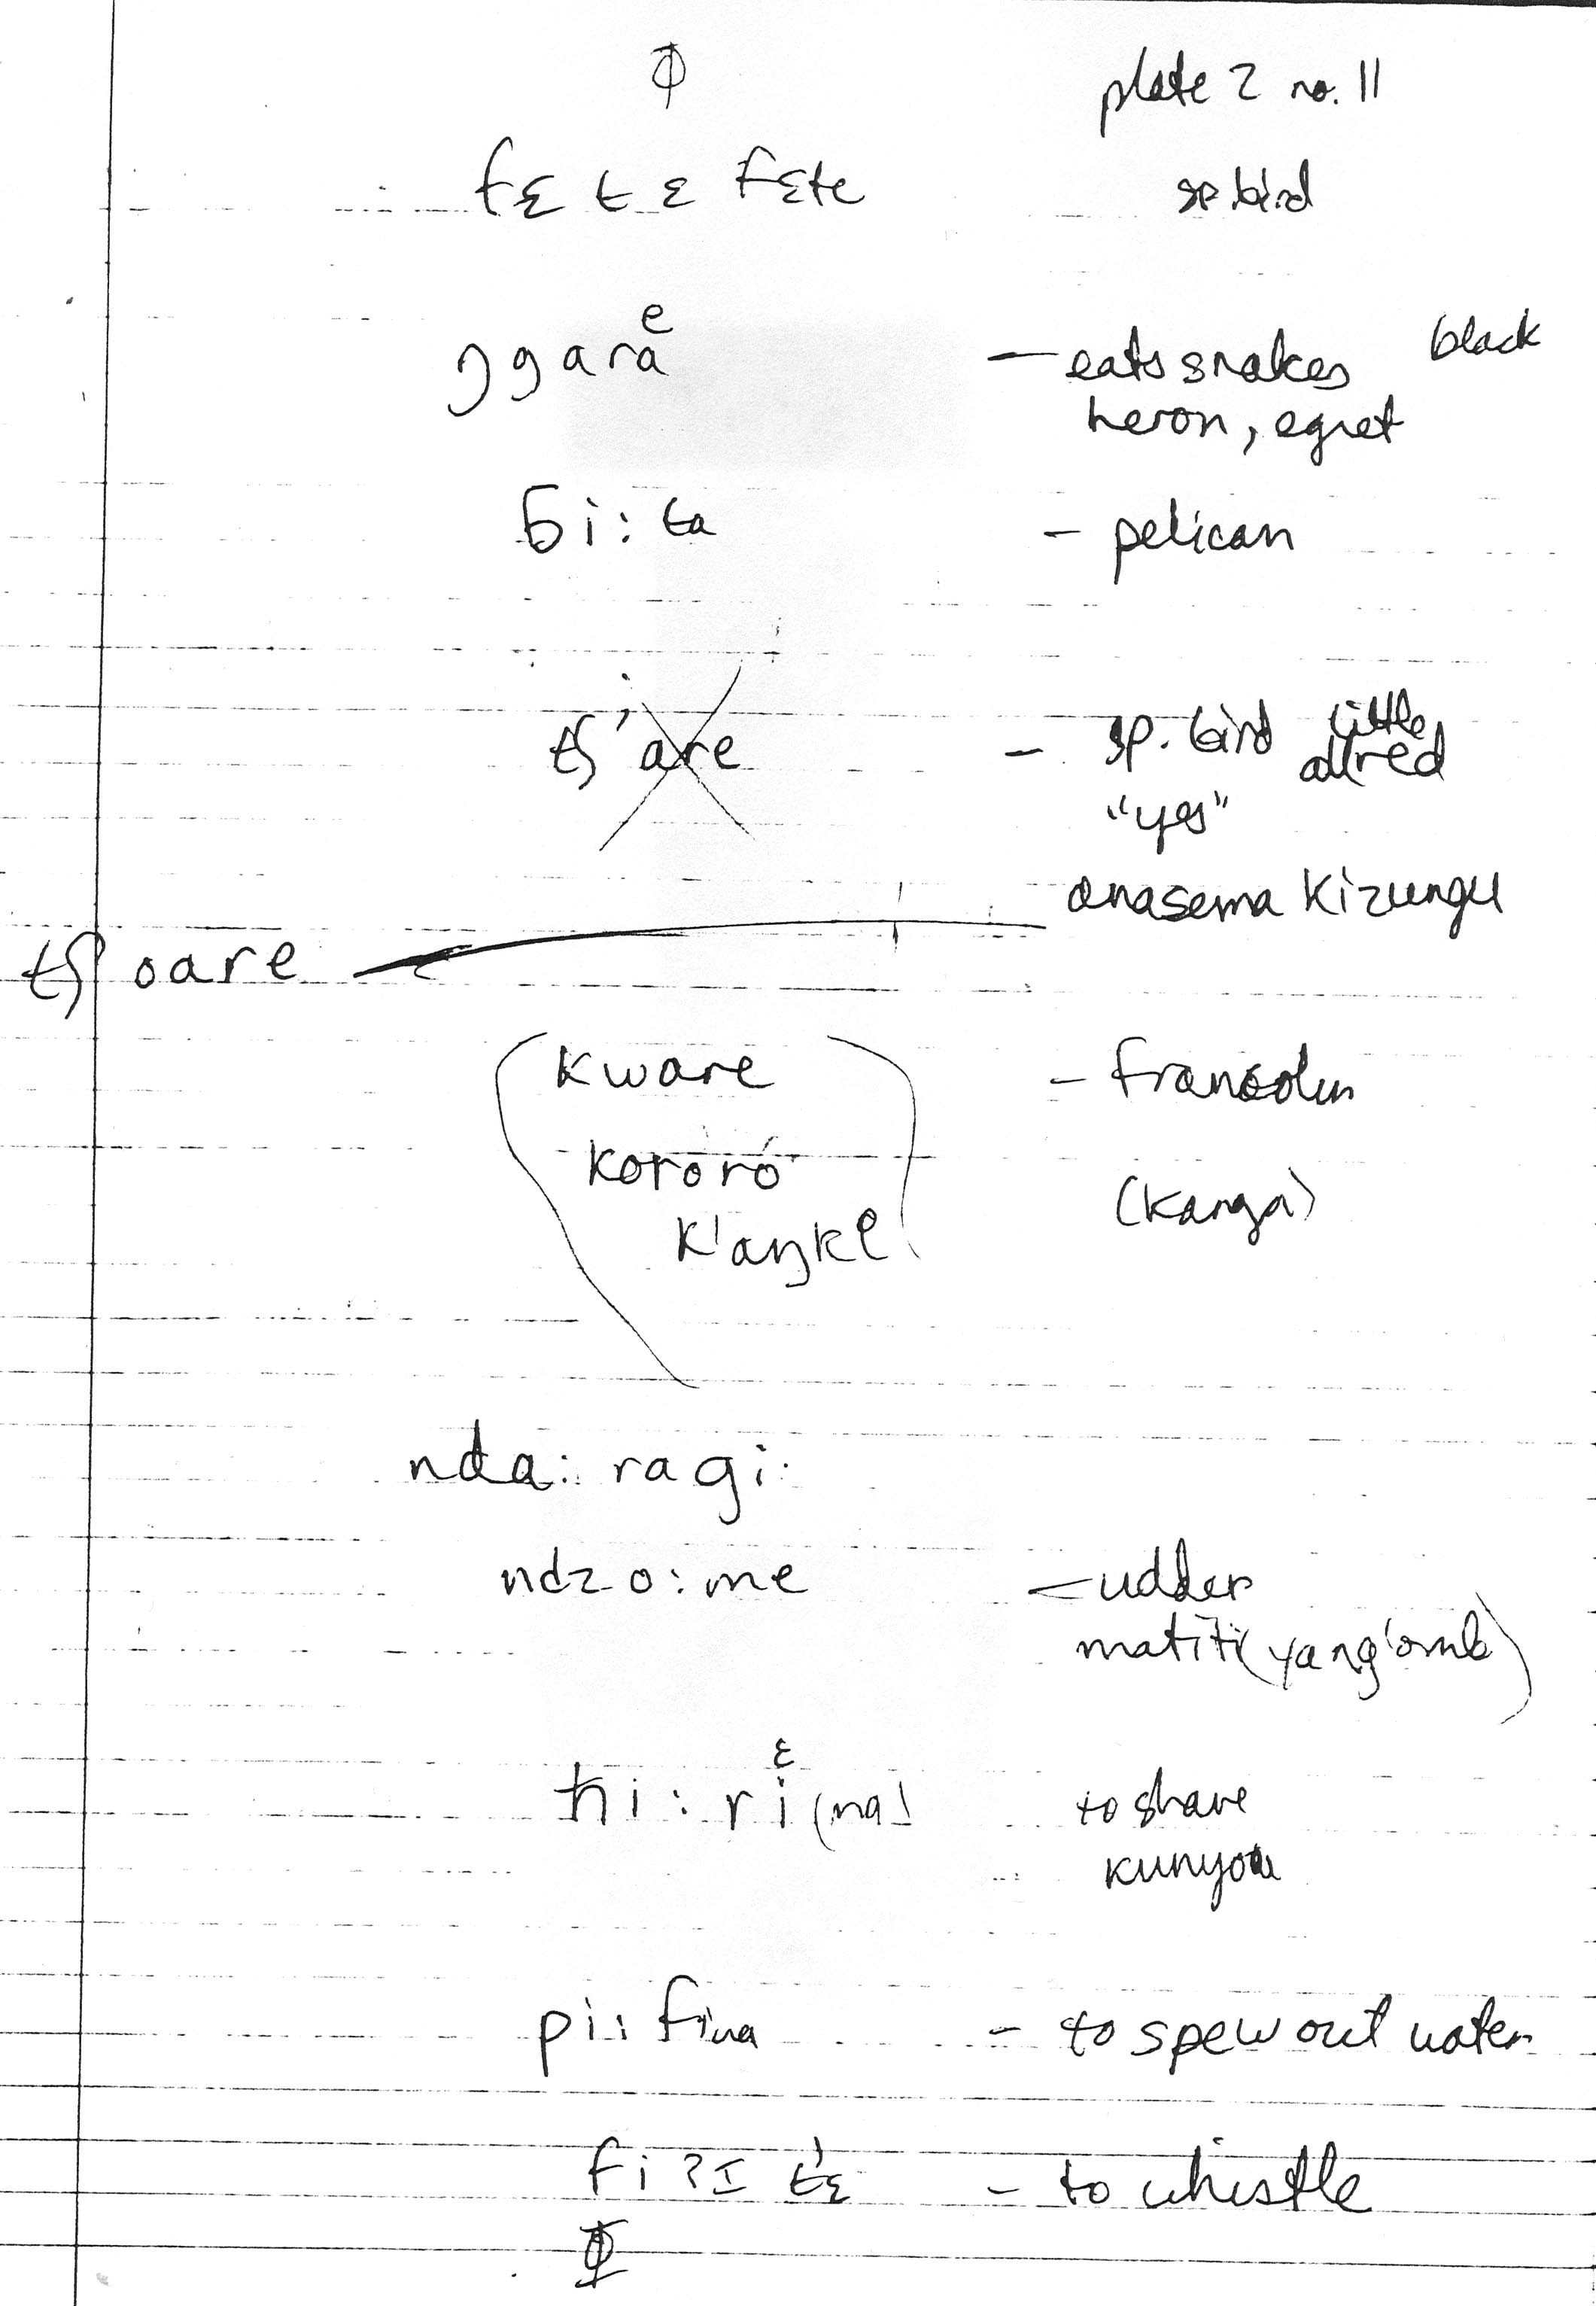 ɸ plate 2 no. 11
fɛtɛ fɛte sp. bird
e
ŋgara – eats snakes black
heron, egret
ɓi:ta – pelican
tʃ'are – sp. bird little
all red
"yes"
anasema Kizungu
tʃoare
(kware – francolin
kororó
k'aŋke) (Kanga)
nda:ragi:
ndzo:me – udder
matiti (ya ng'omb)
ɛ
ħi:ri (na) to shave
kunyoa
pi:fina – to spew out water
fiʔɪt'ɛ – to whistle
ɸ